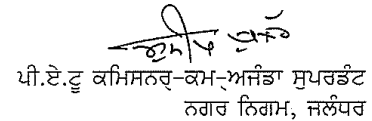 ਪੀ.ਏ.ਟੂ ਕਮਿਸਨਰ੍-ਕਮ੍-ਅਜੰਡਾ ਸੁਪਰਡੰਟ
ਨਗਰ ਨਿਗਮ, ਜਲੰਧਰ